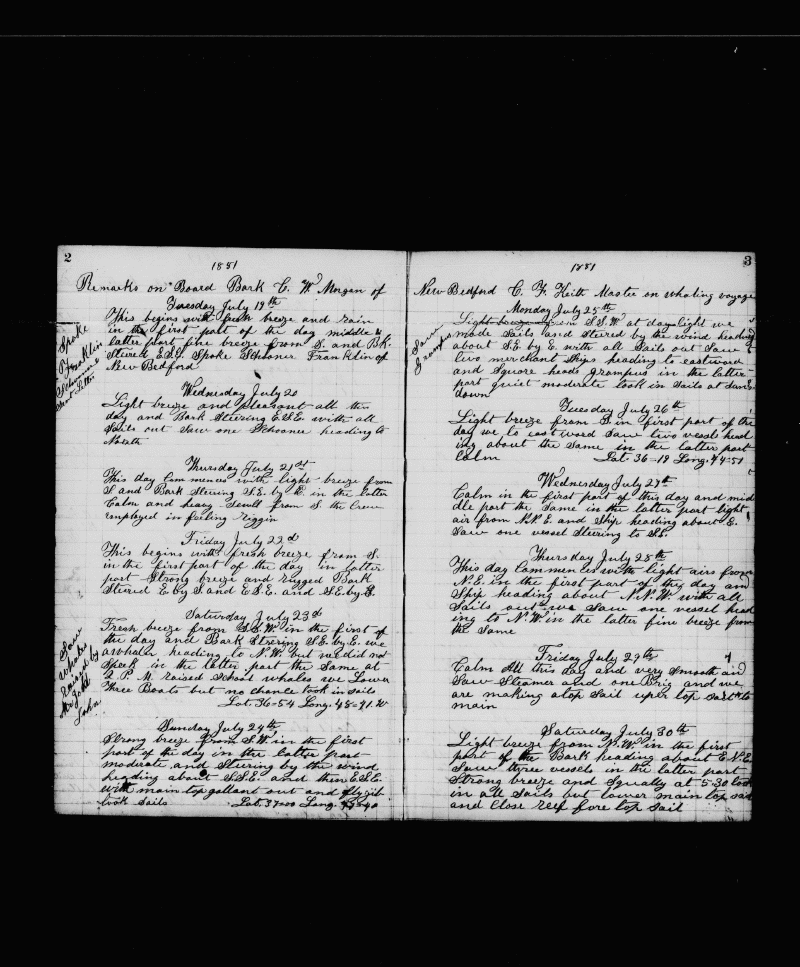 2
1881
Remarks on Board Bark C. W. Morgan of
Tuesday July 19th
This begins with fresh breeze and rain
in the first part of the day middle &
latter part fine breeze from S. and Bk.
Stered E.S.E. Spoke Schooner Franklin of
New Bedford
Spoke
Franklin
Schooner &
Sent Letter
Wednesday July 20
Light breeze and pleasant all this
day and Bark Steering E.S.E. with all
Sails out Saw one Schooner heading to
North
Thursday July 21st
This day Commences with light breeze from
S and Bark Steering S.E. by E. in the latter
Calm and heavy Swell from S. the Crew
employed in fixing riggin
Friday July 22d
This begins with fresh breeze from S.
in the first part of the day in latter
part Strong breeze and rugged Bark
Stered E by S and E.S.E. and S.E. by E.
Saturday July 23d
Fresh breeze from S.S.W. in the first of
the day and Bark Steering S.E. by E. we
a whaler heading to N.W. but we did not
Speek in the latter part the Same at
2 P M raised School whales we Lower
Three Boats but no chance took in sails
Lat. 36=54 Long. 48=91.W
Saw
whales
raised by
John
Sunday July 24th
Strong breeze from S.W in the first
part of the day in the latter part
moderate and Steering by the wind
heading about S.S.E. and then E.S.E.
with main top gallant out and fly jib
took Sails Lat. 37=00 Long.
3
1881
New Bedford C. F. Keith Master on whaling voyage
Monday July 25th
Light breeze from S.S.W at daylight we
made Sails and Stered by the wind heading
about S.E. by E. with all Sails out Saw
two merchant Ships heading to eastward
and Square heads grampus in the latter
part quiet moderate took in Sails at Sun
down
Saw
Grampus
Tuesday July 26th
Light breeze from S. in first part of the
day we to eastward Saw two vessels head
ing about the Same in the latter part
Calm Lat. 36=19 Long. 44=51
Wednesday July 27th
Calm in the first part of this day and mid
dle part the Same in the latter part light
air from N.E. and Ship heading about E.
Saw one vessel Steering to S.E.
Thursday July 28th
This day Commences with light airs from
N.E. in the first part of the day and
Ship heading about N.N.W. with all
Sails out we Saw one vessel head
ing to N.W. in the latter fine breeze from
the Same
Friday July 29th
Calm All this day and very Smooth and
Saw Steamer and one Brig and we
are making a top Sail uper top sail to
main
Saturday July 30th
Light breeze from N.W. in the first
part of the Bark heading about E.N.E.
Saw three vessels in the latter part
Strong breeze and Squaly at 5-30 took
in all Sails but lower main top sail
and Close reef fore top Sail